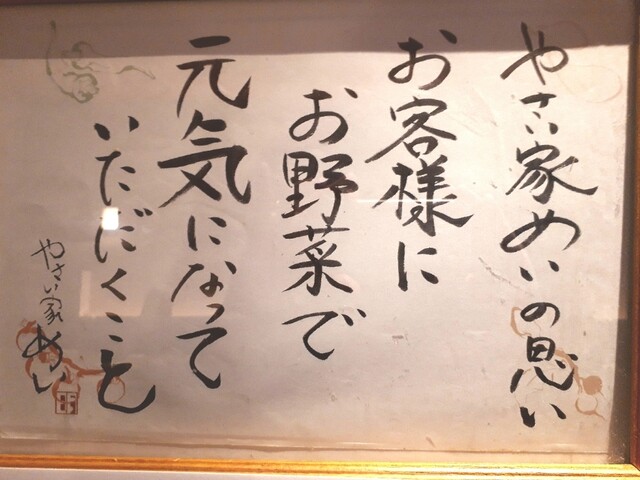 やさい家めいの思い
お客様に
お野菜で
元気になって
いただくこと
やさい家めい